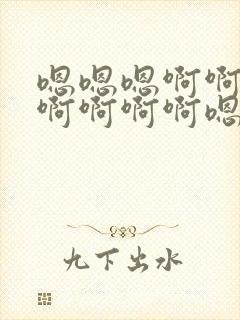 嗯嗯嗯啊啊
啊啊啊啊嗯
九下出水